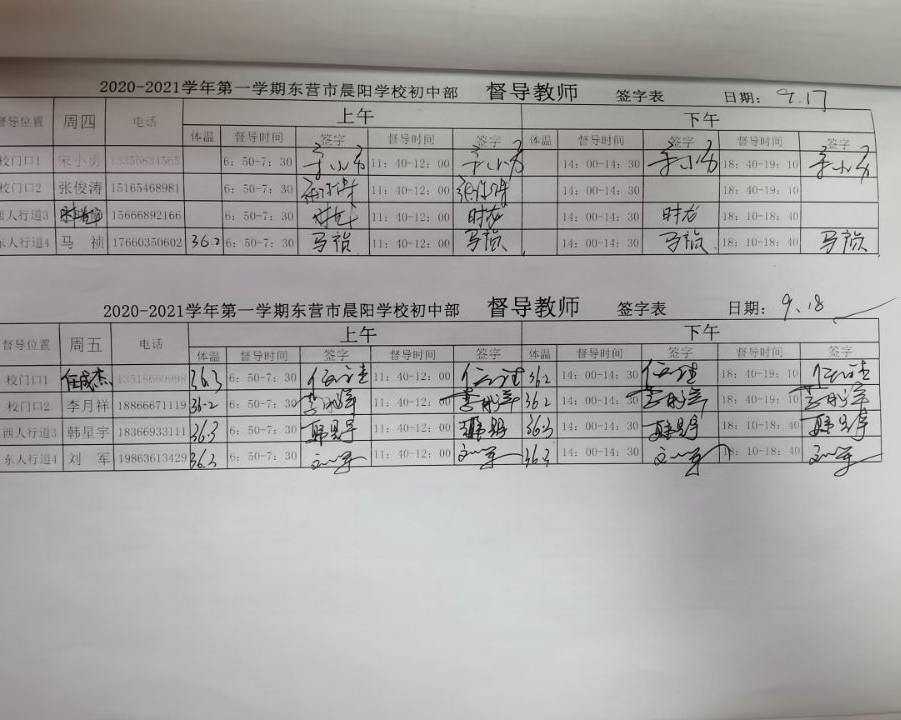 2020-2021学年第一学期东营市晨阳学校初中部 督导教师 签字表 日期: 9.17
督导位置 周四 电话 上午 下午
体温 督导时间 签字 督导时间 签字 体温 督导时间 签字 督导时间 签字
校门口1 宋小勇 6:50-7:30 11:40-12:00 14:00-14:30 18:40-19:10
校门口2 张俊涛 15165468981 6:50-7:30 11:40-12:00 14:00-14:30 18:40-19:10
西人行道3 15666892166 6:50-7:30 11:40-12:00 14:00-14:30 18:10-18:40
东人行道4 马 祯 17660350602 36.2 6:50-7:30 马祯 11:40-12:00 马祯 14:00-14:30 马祯 18:10-18:40 马祯
2020-2021学年第一学期东营市晨阳学校初中部 督导教师 签字表 日期: 9.18
督导位置 周五 电话 上午 下午
体温 督导时间 签字 督导时间 签字 体温 督导时间 签字 督导时间 签字
校门口1 任成杰 36.3 6:50-7:30 11:40-12:00 36.2 14:00-14:30 18:40-19:10
校门口2 李月祥 18866671119 36.2 6:50-7:30 李月祥 11:40-12:00 李月祥 36.2 14:00-14:30 李月祥 18:40-19:10 李月祥
西人行道3 韩星宇 18366933111 36.3 6:50-7:30 韩星宇 11:40-12:00 韩星宇 36.3 14:00-14:30 韩星宇 18:10-18:40 韩星宇
东人行道4 刘 军 19863613429 36.3 6:50-7:30 刘军 11:40-12:00 刘军 36.3 14:00-14:30 刘军 18:10-18:40 刘军